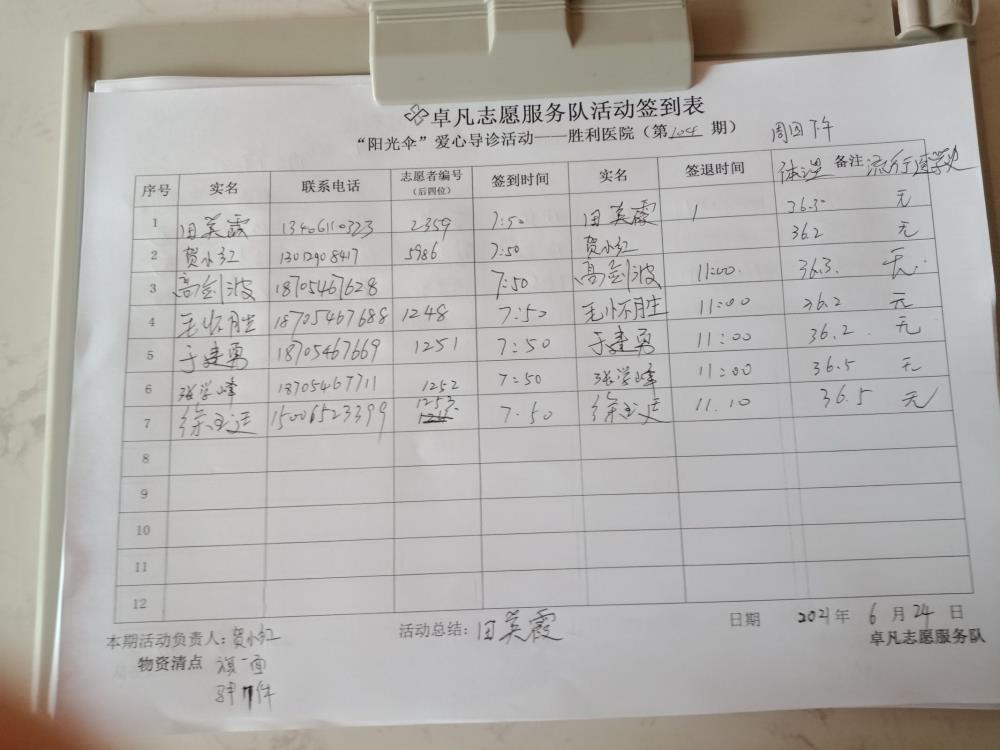 卓凡志愿服务队活动签到表
“阳光伞”爱心导诊活动——胜利医院（第104期） 周四下午
序号 实名 联系电话 志愿者编号（后四位） 签到时间 实名 签退时间 体温 备注 流行病学史
1 田美霞 13406110323 2359 7:50 田美霞 / 36.30 无
2 贺小红 13012908417 5986 7:50 贺小红 36.2 无
3 高剑波 18705467628 7:50 高剑波 11:00 36.3 无
4 毛怀胜 18705467688 1248 7:50 毛怀胜 11:00 36.2 无
5 于建勇 18705467669 1251 7:50 于建勇 11:00 36.2 无
6 张学峰 18705467711 1252 7:50 张学峰 11:00 36.5 无
7 徐 15006523399 1253 7.50 徐 11.10 36.5 无
8
9
10
11
12
本期活动负责人：贺小红 活动总结：田美霞 日期 2021年 6月24日
物资清点 旗一面 卓凡志愿服务队
7件